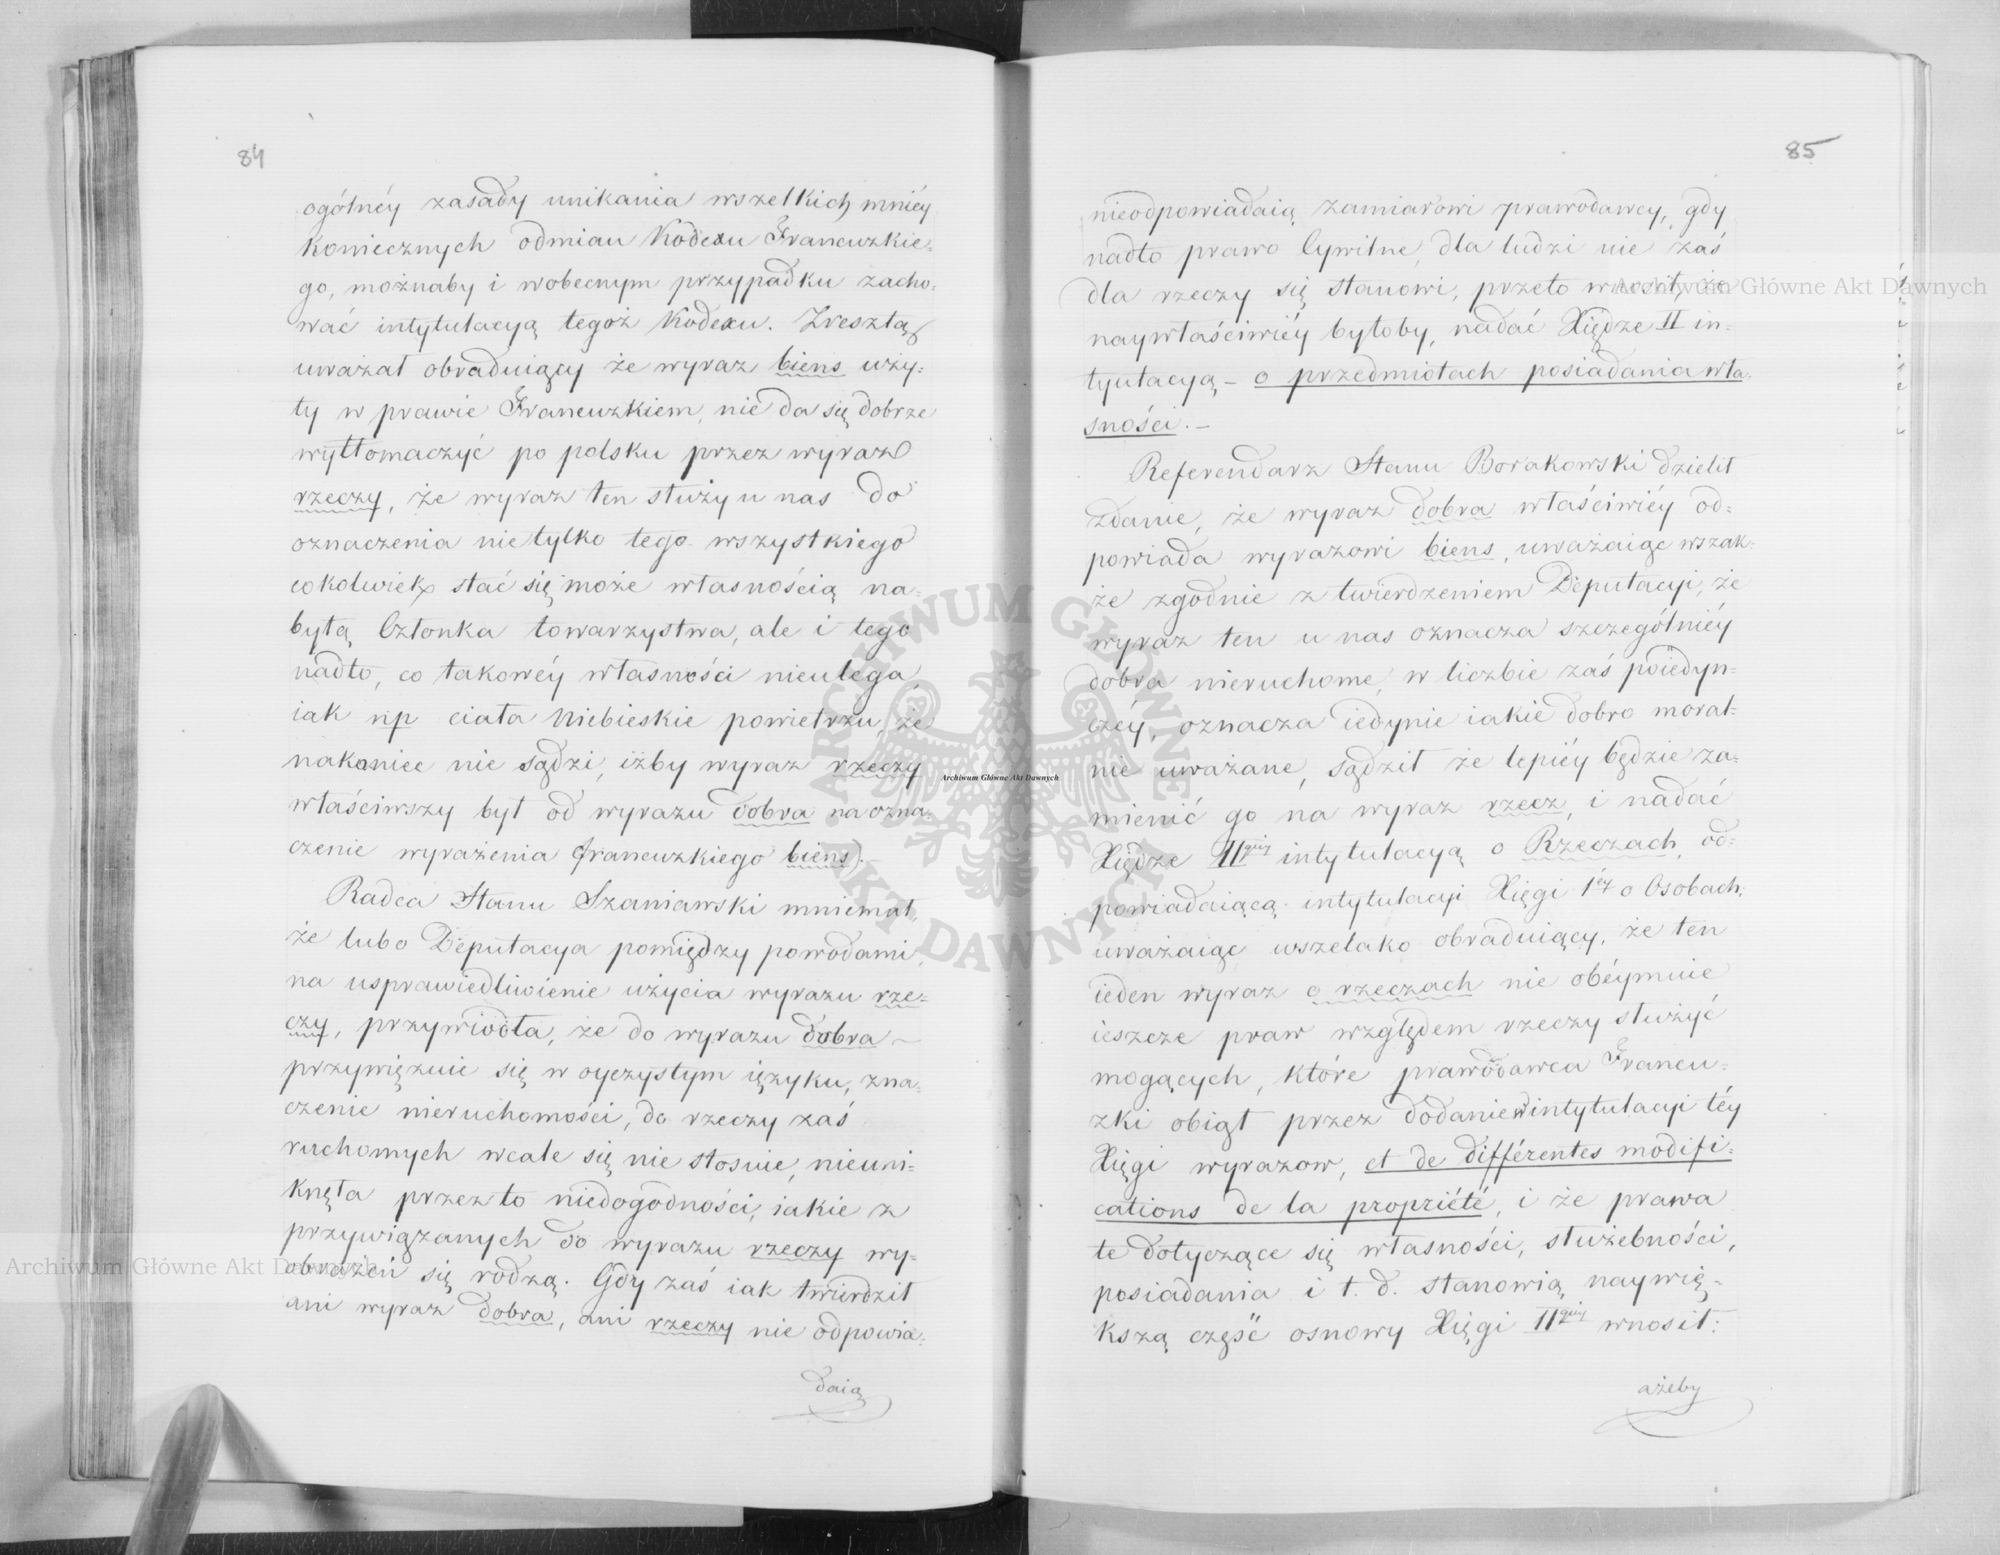 84
ogólnéy zasady unikania wszelkich mniéy
koniecznych odmian Kodexu Francuzkie-
go, możnaby i wobecnym przypadku zacho-
wać intytulacyą tegoż Kodexu. Zresztą
uważał obraduiący że wyraz biens uży-
ty w prawie Francuzkiem, nie da się dobrze
wytłomaczyć po polsku przez wyraz
rzeczy, że wyraz ten służy u nas do
oznaczenia nietylko tego wszystkiego
cokolwiek stać się może własnością na-
bytą Członka towarzystwa, ale i tego
nadto, co takowéy własności nieulega,
iak np ciała Niebieskie powietrzu, że
nakoniec nie sądzi, iżby wyraz rzeczy
właściwszy był od wyrazu dobra na ozna-
czenie wyrażenia francuzkiego biens).
Radca Stanu Szaniawski mniemał,
że lubo Deputacya pomiędzy powodami,
na usprawiedliwienie użycia wyrazu rze-
czy, przywiodła, że do wyrazu dobra
przywięzuie się w oyczystym ięzyku, zna-
czenie nieruchomości, do rzeczy zaś
ruchomych wcale się nie stosuie, nieuni-
knęła przez to niedogodności, iakie z
przywiązanych do wyrazu rzeczy wy-
obrażeń się rodzą. Gdy zaś iak twierdził
ani wyraz dobra, ani rzeczy nie odpowia-
daią
85
nieodpowiadaią zamiarowi prawodawcy, gdy
nadto prawo Cywilne, dla ludzi nie zaś
dla rzeczy się stanowi, przeto wnosił, że
naywłaściwiéy byłoby, nadać Xiędze II in-
tyutacyą – o przedmiotach posiadania wła-
sności. –
Referendarz Stanu Borakowski dzielił
zdanie, że wyraz dobra właściwiéy od-
powiada wyrazowi biens, uważaiąc wszak-
że zgodnie z twierdzeniem Deputacyi, że
wyraz ten u nas oznacza szczególniéy
dobra nieruchome, w liczbie zaś poiedyn-
czéy, oznacza iedynie iakie dobro moral-
nie uważane, sądził że lepiéy będzie za-
mienić go na wyraz rzecz, i nadać
Xiędze IIgiéy intytulacyą o Rzeczach, od-
powiadaiącą intytulacyi Xięgi 1éy o Osobach;
uważaiąc wszelako obraduiący, że ten
ieden wyraz o rzeczach nie obéymuie
ieszcze praw względem rzeczy służyć
mogących, które prawodawca Francu-
zki obiął przez dodanie d intytulacyi téy
Xięgi wyrazow, et de différentes modifi-
cations de la propriété, i że prawa
te dotyczące się własności, służebności,
posiadania i t. d. stanowią naywię-
kszą część osnowy Xięgi IIgiéy wnosił:
ażeby
Archiwum Główne Akt Dawnych
Archiwum Główne Akt Dawnych
Archiwum Główne Akt Dawnych
ARCHIWUM GŁÓWNE
AKT DAWNYCH